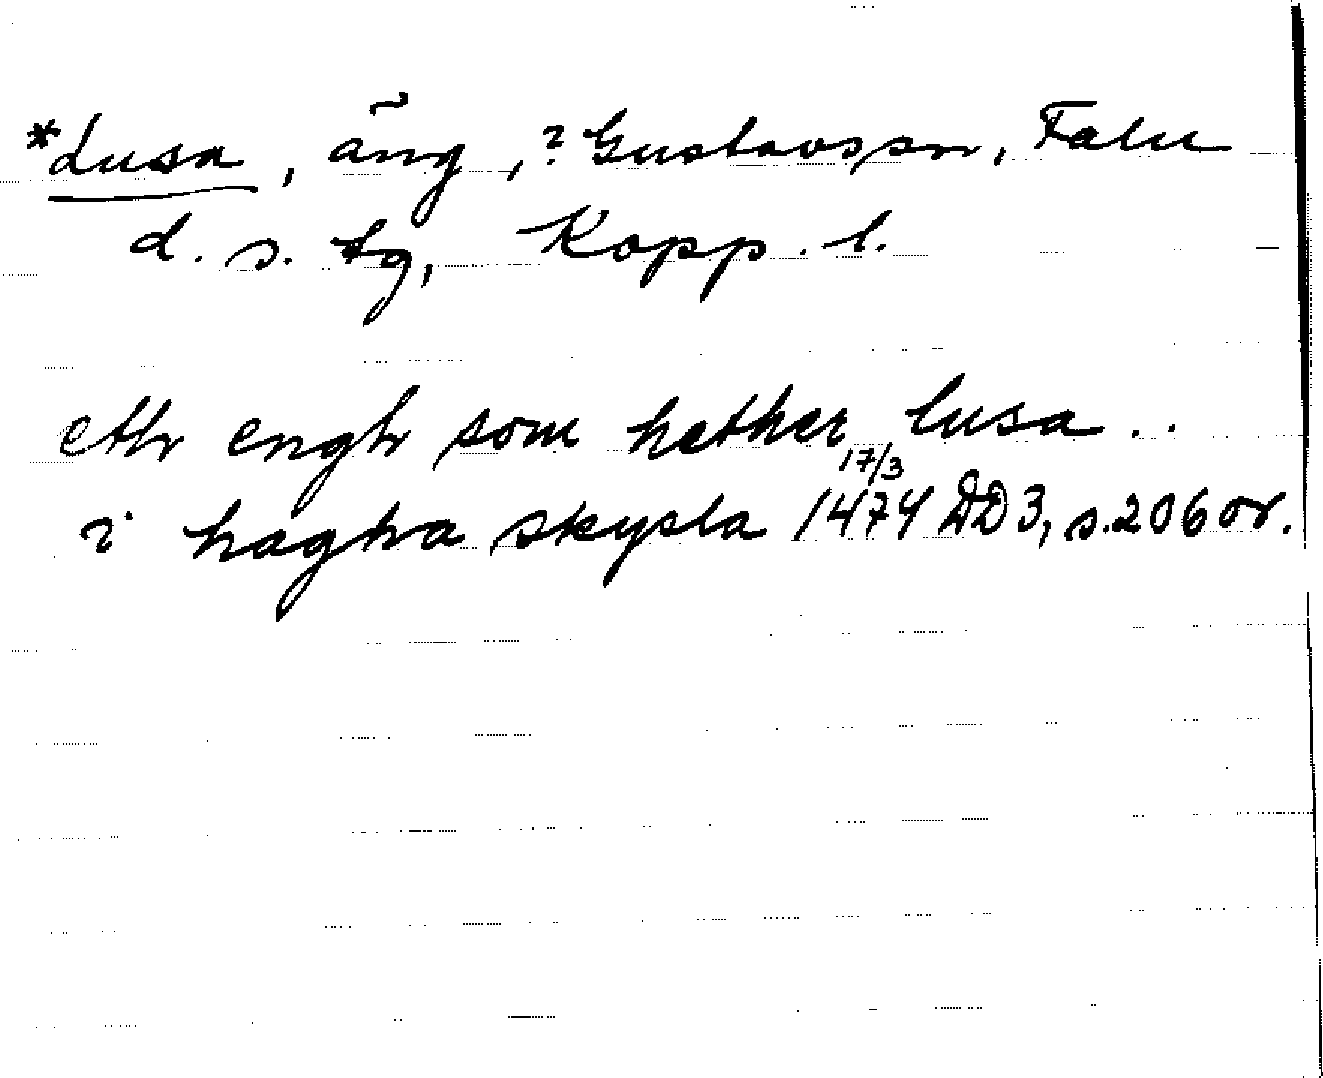 *Lusa, äng, ? Gustavs sn, Falu
d. s. tg, Kopp. l.
eth engh som hether lusa..
i hagha skysla 17/3 1474 DD 3, s. 206 or.